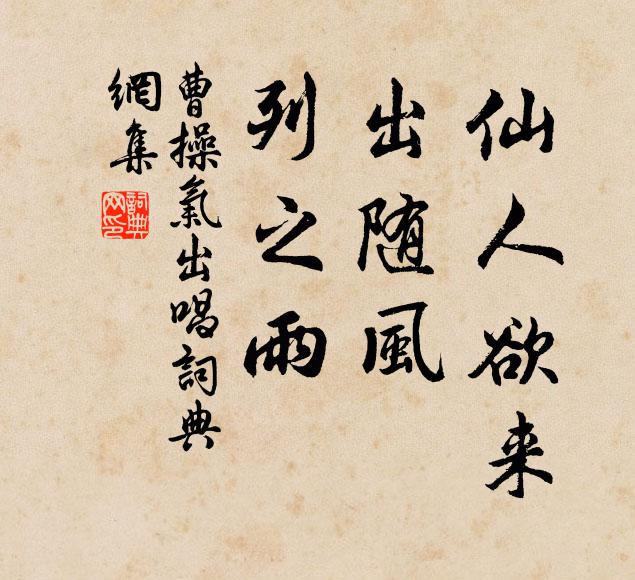 仙人欲来
出随風
列之雨
曹操氣出唱詞典
網集
詞典
网印